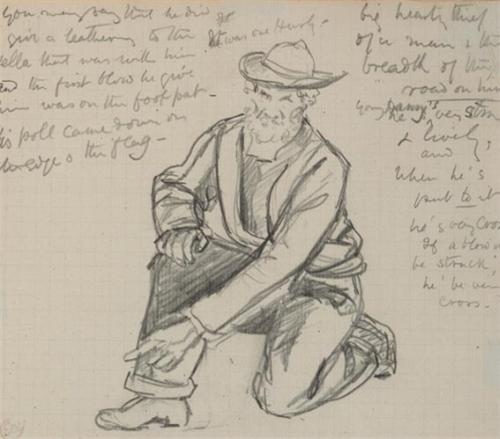 you may say that he did
give a leathering to the
fella that was with him.
and the first blow he give
him was on the foot pat-
his poll came down on
the edge o the flag-
It was one Hurly-
big hearty thief
of a man & the
breadth of the
road on him
he's very
& lively,
and
when he's
put to it
he's very cross
If a blow
be struck
he'll be very
cross.